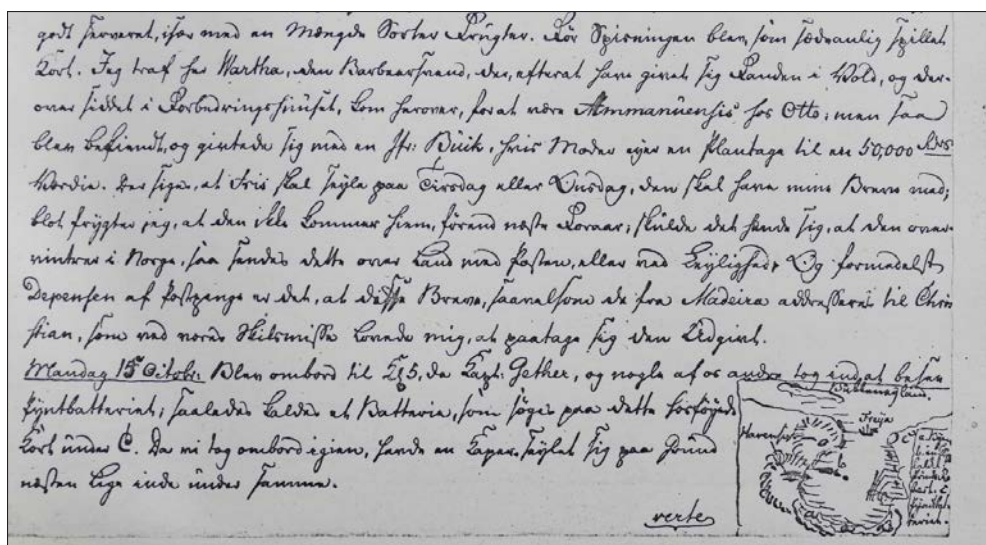 godt serveret, især med en Mængde Sorter Frugter. Før Spisningen blev, som sædvanlig spillet
Kort. Jeg traf her Wartha, den Barbeersvend, der, efterat have givet sig Fanden i Vold, og der-
over siddet i Forbedringshuuset, kom herover, for at være Ammanuensis hos Otto; men saa
blev bekiendt, og givtede sig med en Jfr: Buik, hvis Moder ejer en Plantage til en 50,000
Værdie. Der siges, at Iris skal seyle paa Tirsdag eller Onsdag, den skal have mine Breve med;
blot frygter jeg, at den ikke kommer hiem, førend næste Foraar; skulde det hende sig, at den over-
vintrer i Norge, saa sendes dette over Land med Posten, eller ved Leylighed. Og formedelst
Depensen af Postpenge er det, at disse Breve, saavelsom de fra Madeira addresseres til Chri
stian, som ved vores Skilsmisse lovede mig, at paatage sig den Udgivt.
Mandag 15 Octobr: Blev ombord til Kl 5, da Capt: Gether, og nogle af os andre tog ind at besee
Pyntbatteriet; saaledes kaldes et Batterie, som søges paa dette hosføyede
Kort under C. Da vi tog ombord igien, havde en Kaper seylet sig paa Grund
næsten lige inde under samme.
verte
Havensigt
Freija
C